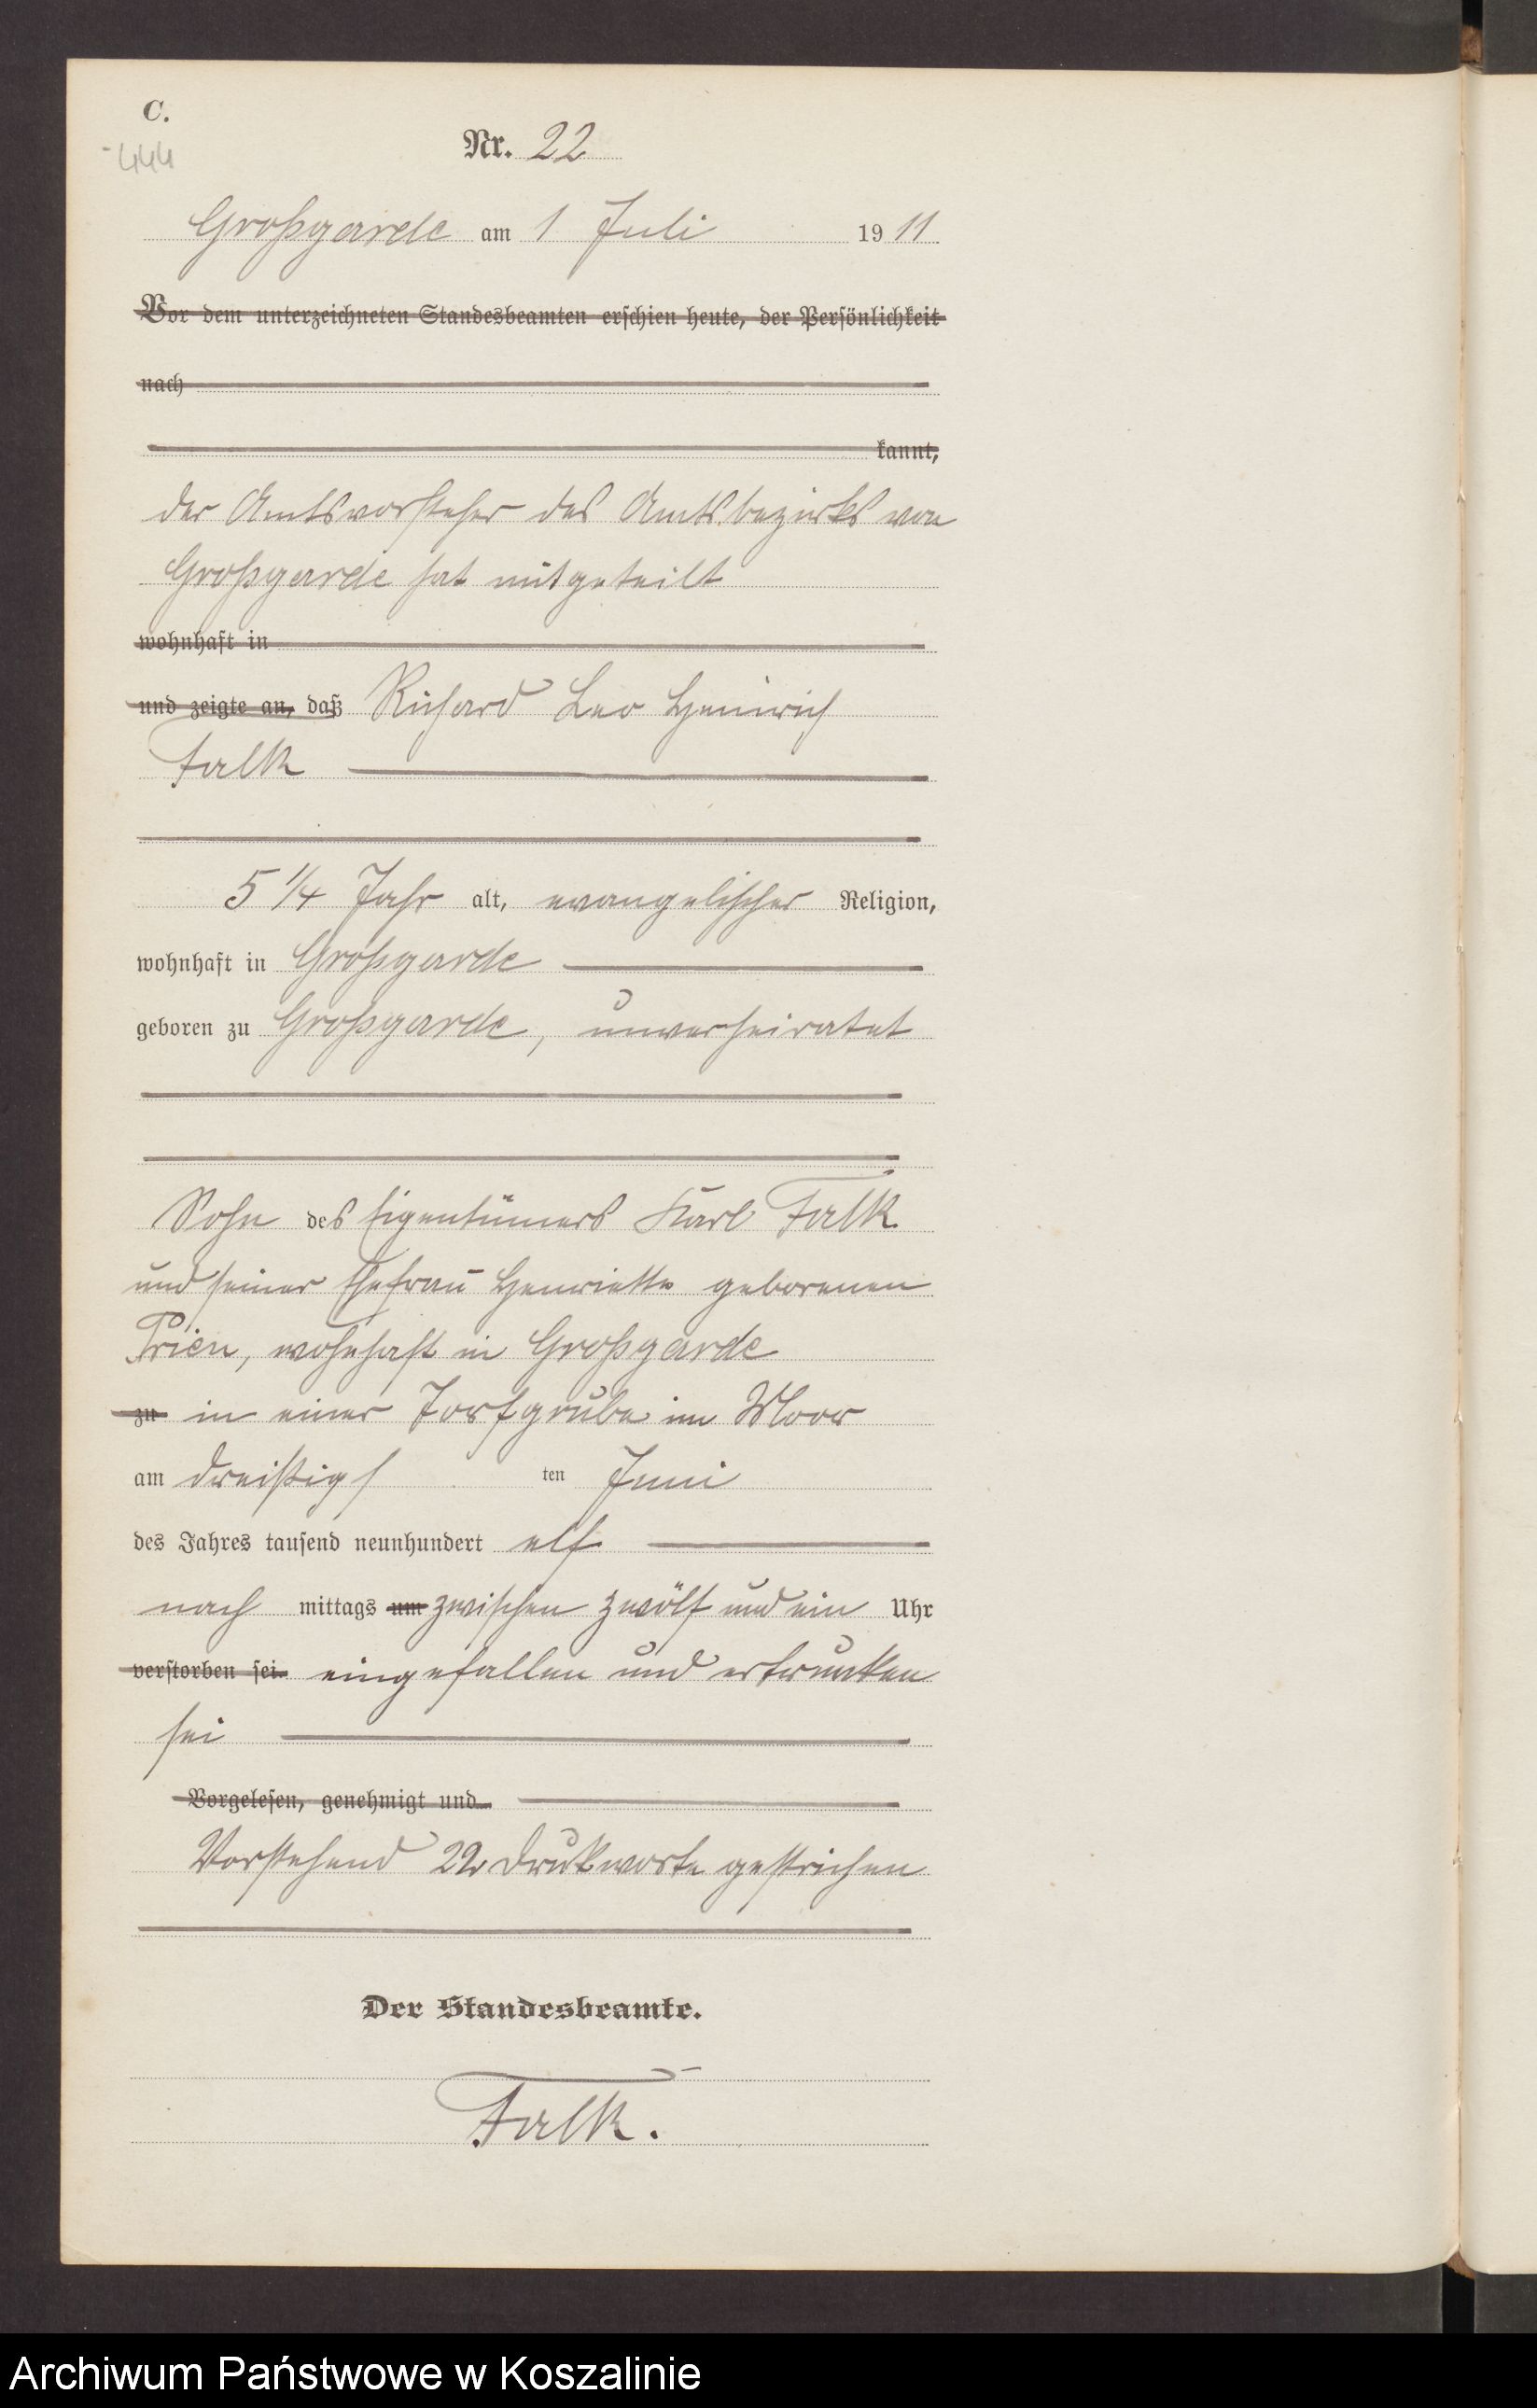 C.
444
Nr. 22
Großgarde am 1 Juli 1911
Vor dem unterzeichneten Standesbeamten erschien heute, der Persönlichkeit
nach
kannt,
der Amtsvorsteher des Amtsbezirks von
Großgarde hat mitgeteilt
wohnhaft in
und zeigte an, daß Richard Leo Heinrich
Falk
5 1/4 Jahr alt, evangelischer Religion,
wohnhaft in Großgarde
geboren zu Großgarde, unverheiratet
Sohn des Eigentümers Karl Falk
und seiner Ehefrau Henriette geborenen
Prien, wohnhaft in Großgarde
zu in einer Torfgrube im Moor
am dreißigs ten Juni
des Jahres tausend neunhundert elf
nach mittags um zwischen zwölf und ein Uhr
verstorben sei eingefallen und ertrunken
sei
Vorgelesen, genehmigt und
Vorstehend 22 Druckworte gestrichen
Der Standesbeamte.
Falk.
Archiwum Państwowe w Koszalinie